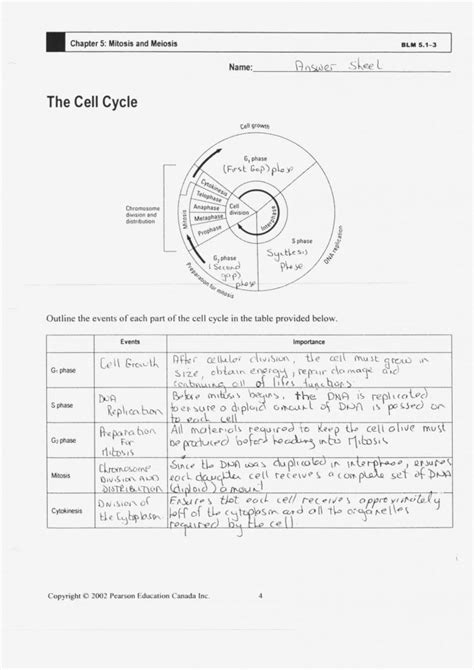 Chapter 5: Mitosis and Meiosis
BLM 5.1–3
Name: Answer Sheet
The Cell Cycle
Cell growth
G₁ phase
(First Gap) phase
Cytokinesis
Telophase
Anaphase
Metaphase
Prophase
Cell division
Interphase
Chromosome division and distribution
Mitosis
S phase
Synthesis
Phase
DNA replication
G₂ phase
(Second
gap)
Preparation for mitosis
Outline the events of each part of the cell cycle in the table provided below.
Events
Importance
G₁ phase
Cell Growth
After cellular division, the cell must grow in
size, obtain energy, repair damage and
continuing all of lifes functions
S phase
DNA
Replication
Before mitosis begins, the DNA is replicated
to ensure a diploid amount of DNA is passed on
to each cell
G₂ phase
Preparation
For
Mitosis
All materials required to keep the cell alive must
be produced before heading into Mitosis
Mitosis
Chromosome
DIVISION AND
DISTRIBUTION
Since the DNA was duplicated in interphase, ensures
each daughter cell receives a complete set of DNA
(diploid) amount
Cytokinesis
Division of
the Cytoplasm
Ensures that each cell receives approximately
of the cytoplasm and all the organelles
required by the cell
Copyright © 2002 Pearson Education Canada Inc.
4